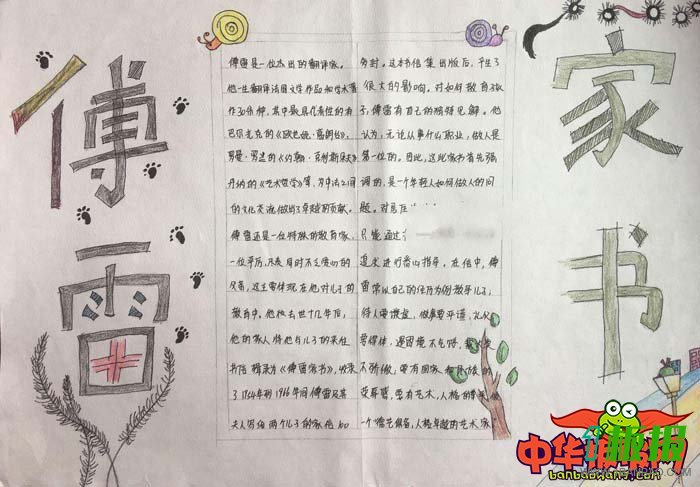 傅雷
家书
傅雷是一位杰出的翻译家。
他一生翻译法国文学作品和学术著
作30余种，其中最具代表性的有
巴尔扎克的《欧也妮·葛朗台》，
罗曼·罗兰的《约翰·克利斯朵夫》
丹纳的《艺术哲学》等，为中法之间
的文化交流做出了卓越的贡献。
傅雷还是一位特殊的教育家，
一位平凡，
父亲，这主要体现在他对儿子的
教育中。他在去世十几年后，
他的家人将他与儿子的来往
书信，辑录为《傅雷家书》，收录
了1954年到1966年间傅雷及其
夫人写给两个儿子的家信100
多封。这本书信集出版后，产生了
很大的影响。对如何教育孩
子，傅雷有自己的独特见解。他
认为，无论从事什么职业，做人是
第一位的。因此，这些家书首先强
调的，是一个年轻人如何做人的问
题。对息在
只能通过
道来进行指导。在信中，傅
雷常以自己的经历为例教导儿子，
待人要谦虚，做事要严谨，礼仪
要得体，遇困境不气馁，获大奖
不骄傲，要有国家和民族的
荣辱感，要有艺术、人格的尊严，做
一个“德艺俱备，人格卓越的艺术家
中华
报网
banbaowang.com